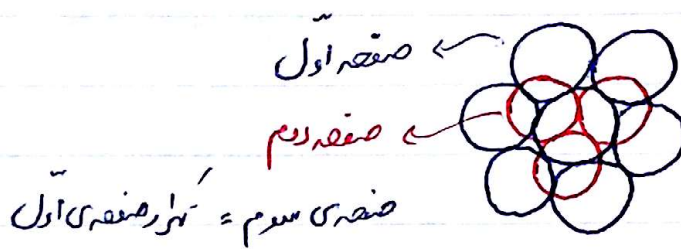 صفحه اوّل
صفحه دوم
صفحه‌ی سوم = تکرار صفحه‌ی اوّل